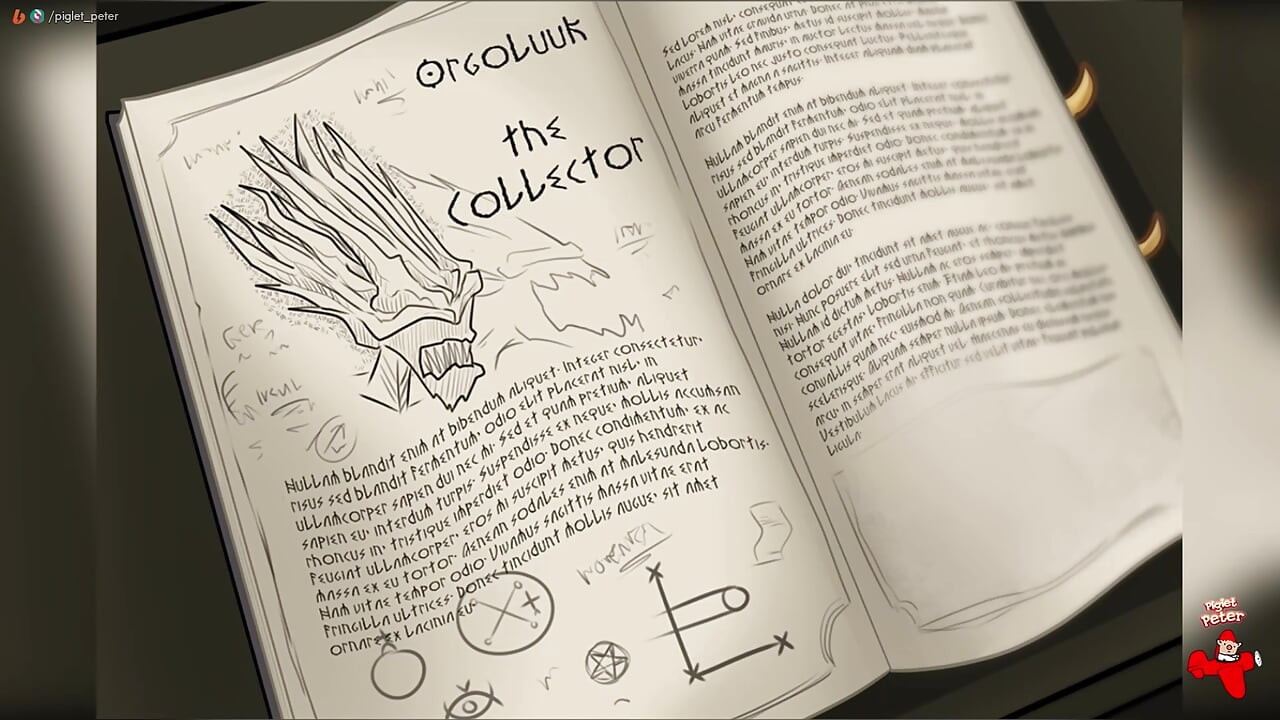 /piglet_peter
Orgoluuk
the
collector
Nullam blandit enim at bibendum aliquet. Integer consectetur,
risus sed blandit fermentum, odio elit placerat nisl, in
ullamcorper sapien dui nec mi. Sed et quam pretium, aliquet
sapien eu, interdum turpis. Suspendisse ex neque, mollis accumsan
rhoncus in, tristique imperdiet odio. Donec condimentum, ex ac
feugiat ullamcorper, eros mi suscipit metus, quis hendrerit
massa ex eu tortor. Aenean sodales enim at malesuada lobortis.
Nam vitae tempor odio. Vivamus sagittis massa vitae erat
fringilla ultrices. Donec tincidunt mollis augue, sit amet
ornare ex lacinia eu.
Sed lorem nisl, consequat
lacus. Nam vitae gravida urna. Donec id suscipit mollis.
viverra quam. Sed finibus, metus
massa tincidunt mauris, in auctor lectus massa
lobortis leo nec justo consequat luctus.
aliquet et magna a sagittis. Integer aliquam
arcu fermentum tempus.
Nullam blandit enim at bibendum aliquet. Integer consectetur
risus sed blandit fermentum, odio elit placerat nisl, in
ullamcorper sapien dui nec mi. Sed et quam pretium, aliquet
sapien eu, interdum turpis. Suspendisse ex neque, mollis
rhoncus in, tristique imperdiet odio. Donec condimentum
feugiat ullamcorper, eros mi suscipit metus, quis hendrerit
massa ex eu tortor. Aenean sodales enim at
Nam vitae tempor odio. Vivamus sagittis massa vitae erat
fringilla ultrices. Donec tincidunt mollis augue, sit amet
ornare ex lacinia eu.
Nulla dolor dui, tincidunt sit amet
nisi. Nunc posuere elit sed urna feugiat, et rhoncus
Nullam id dictum metus. Nullam ac eros semper
tortor egestas lobortis enim. Etiam leo
consequat vitae fringilla non, quam. Curabitur
convallis quam nec euismod mi. Aenean
scelerisque. Aliquam semper nulla ipsum
arcu, in semper erat aliquet vel. Maecenas eu
Vestibulum lacus mi, efficitur sed velit vitae
ligula.
Piglet
Peter